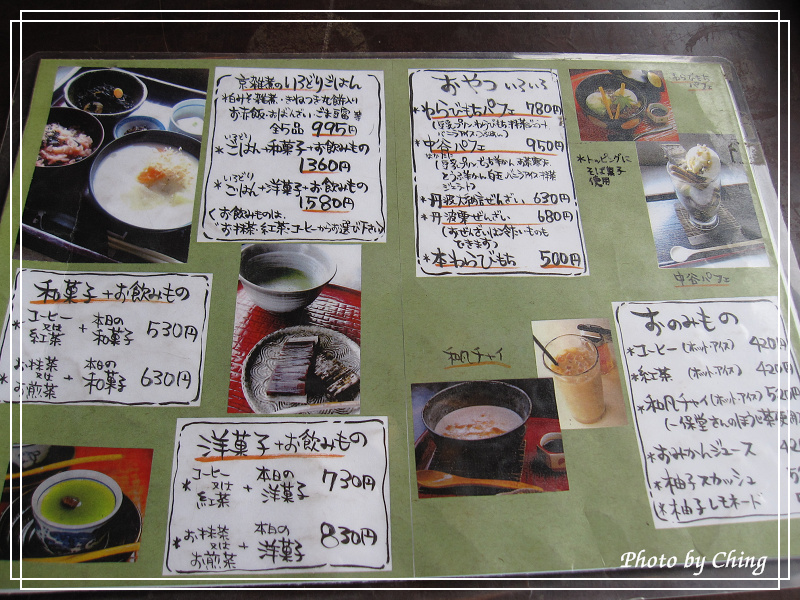 京雑煮のいろどりごはん
白みそ雑煮・きねつき丸餅入り
お赤飯・おばんざい・ごま豆腐 等
全5品 995円
いろどり
*ごはん+和菓子+お飲みもの
1360円
いろどり
*ごはん+洋菓子+お飲みもの
1580円
(お飲みものは、
お抹茶・紅茶・コーヒーからお選び下さい)
和菓子+お飲みもの
*コーヒー 又は 紅茶 + 本日の和菓子 530円
*お抹茶 又は お煎茶 + 本日の和菓子 630円
洋菓子+お飲みもの
*コーヒー 又は 紅茶 + 本日の洋菓子 730円
*お抹茶 又は お煎茶 + 本日の洋菓子 830円
おやついろいろ
*わらびもちパフェ 780円
*中谷パフェ 950円
*丹波大納言ぜんざい 630円
*丹波栗ぜんざい 680円
(おぜんざいは冷たいものも
できます)
*本わらびもち 500円
わらびもち
パフェ
*トッピングに
そば菓子
使用
中谷パフェ
和風チャイ
おのみもの
*コーヒー(ホット・アイス) 420円
*紅茶 (ホット・アイス) 420円
*和風チャイ(ホット・アイス) 520円
(一保堂さんのほうじ茶使用)
*おみかんジュース
*柚子スカッシュ
*柚子レモネード
Photo by Ching